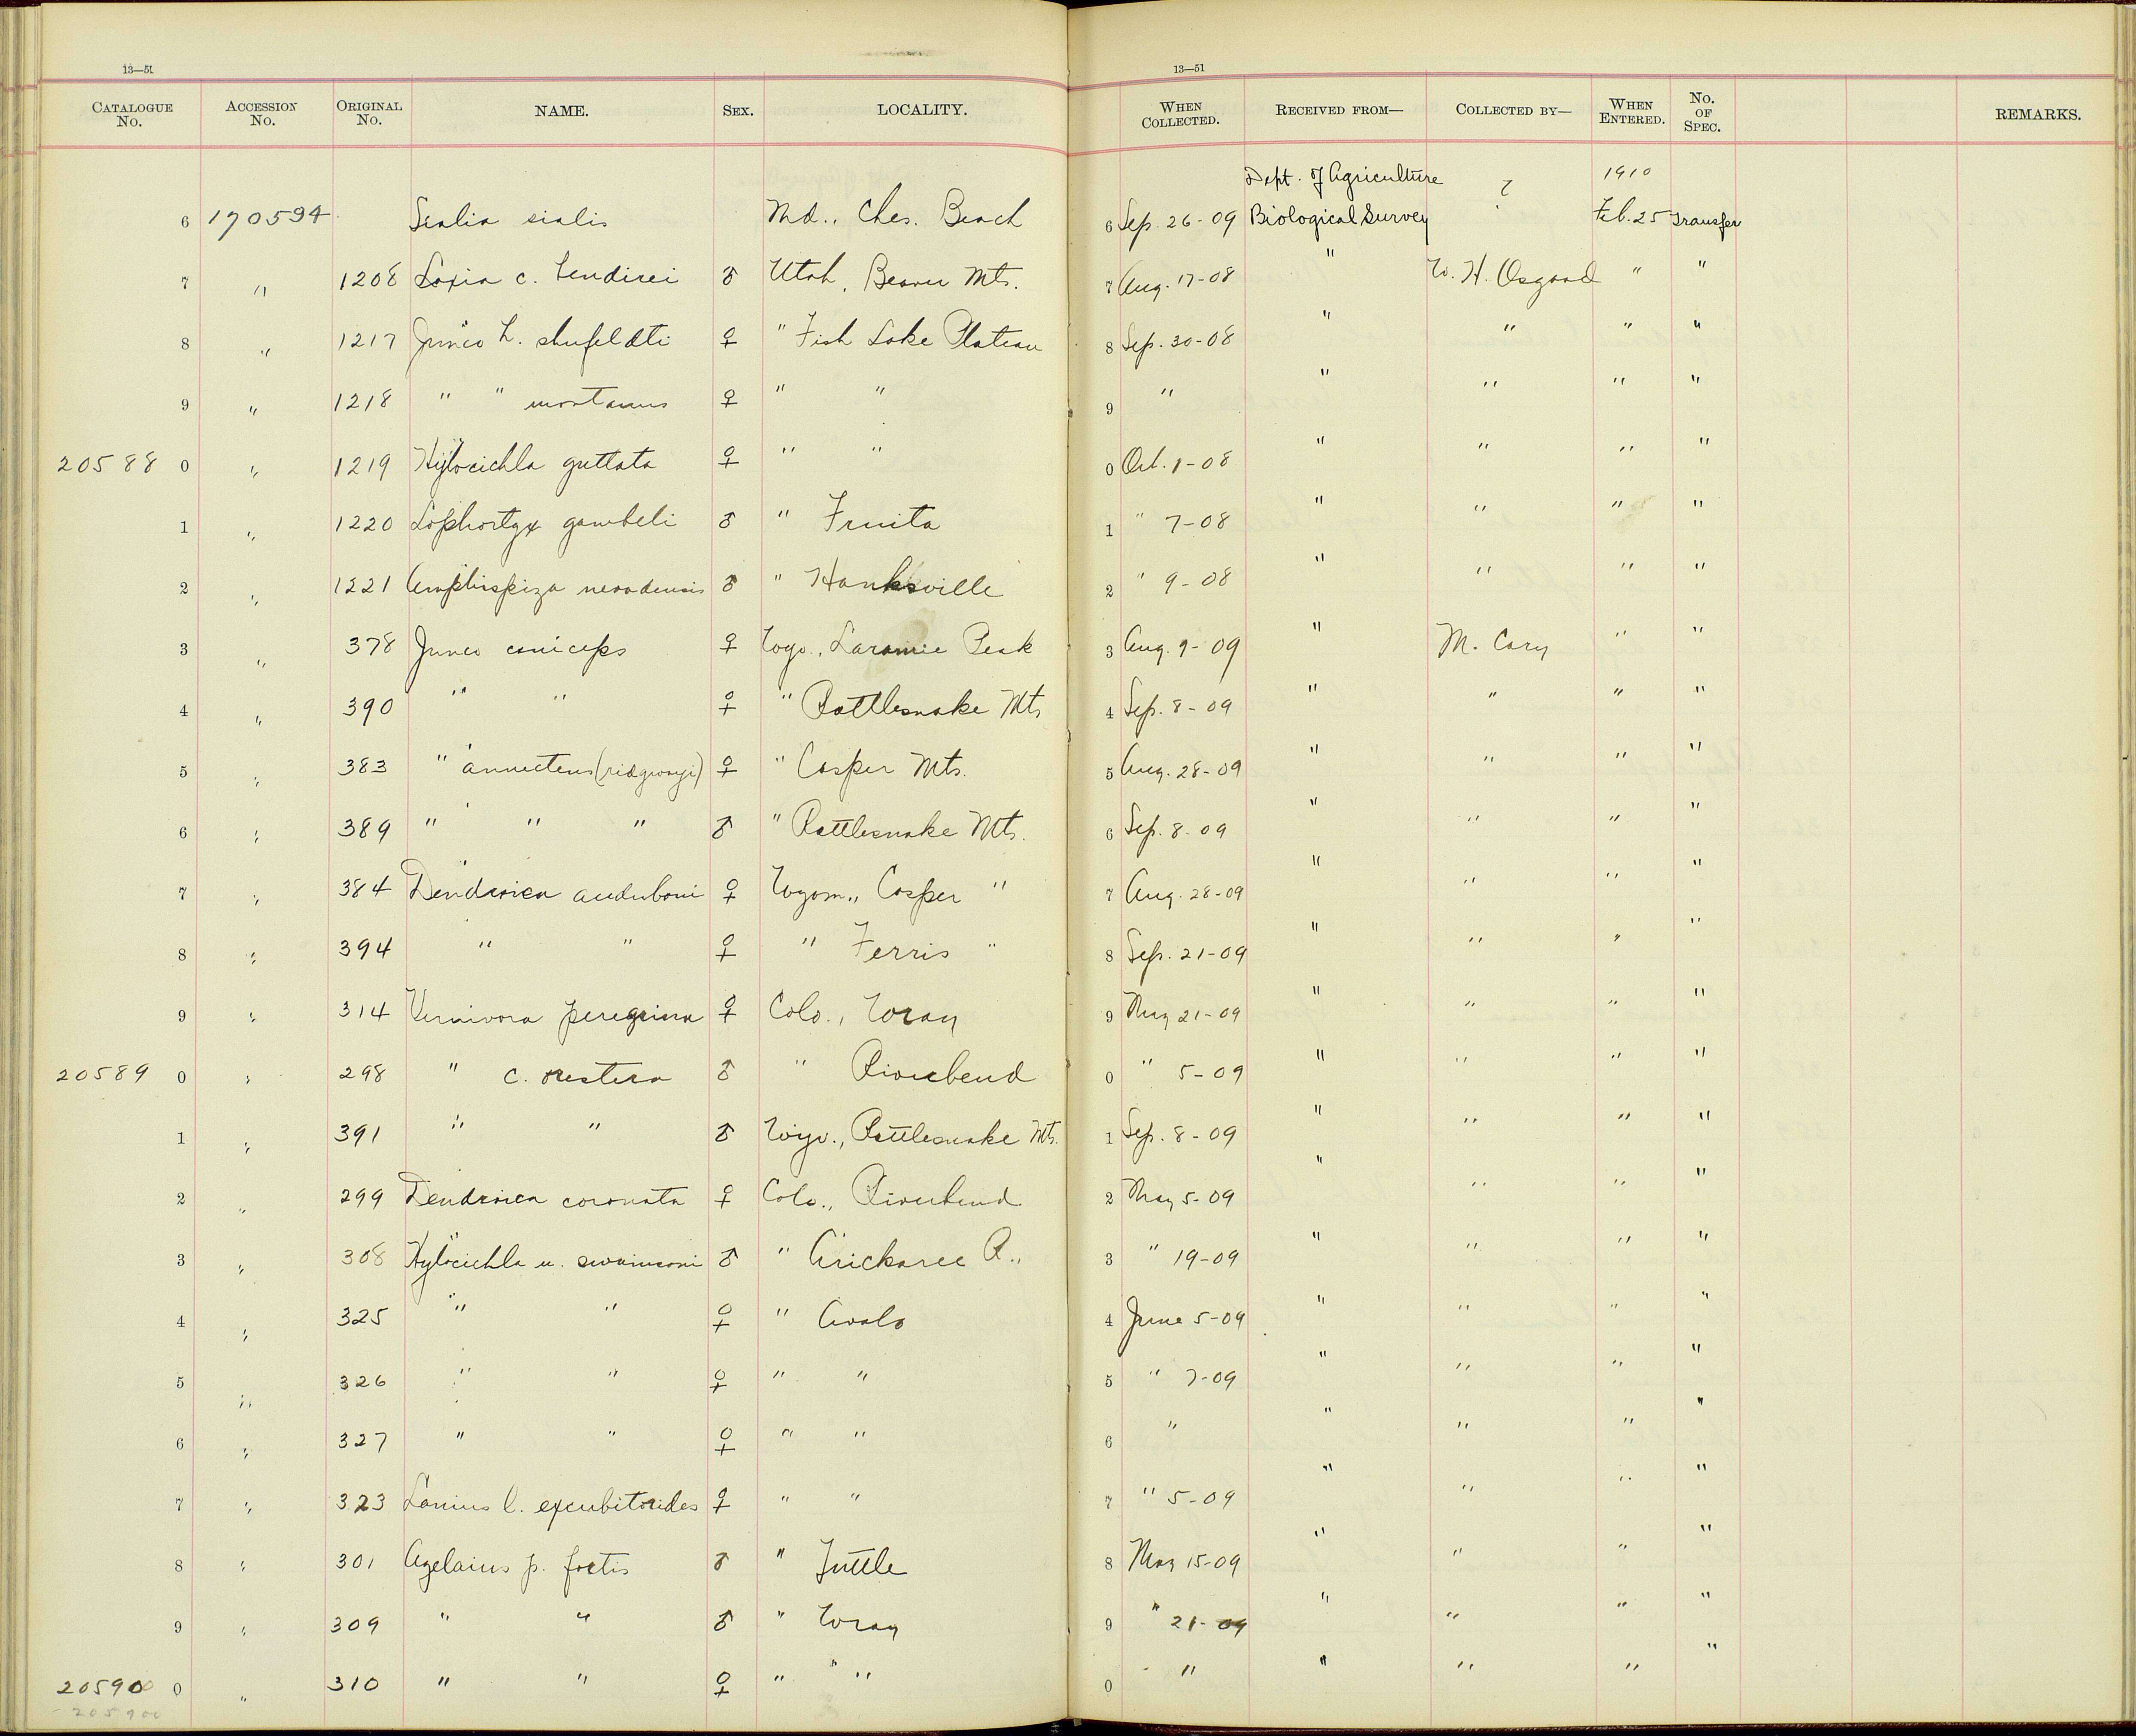 13—51 13—51
CATALOGUE No. ACCESSION No. ORIGINAL No. NAME. SEX. LOCALITY. WHEN COLLECTED. RECEIVED FROM— COLLECTED BY— WHEN ENTERED. No. OF SPEC. REMARKS.
Dept. of Agriculture ? 1910
6 170594 Sialia sialis Md., Ches. Beach 6 Sep. 26-09 Biological Survey Feb. 25 Transfer
7 " 1208 Loxia c. bendirei ♂ Utah, Beaver Mts. 7 Aug. 17-08 " W. H. Osgood " "
8 " 1217 Junco h. shufeldti ♀ " Fish Lake Plateau 8 Sep. 30-08 " " " "
9 " 1218 " " montanus ♀ " " 9 " " " " "
20588 0 " 1219 Hylocichla guttata ♀ " " 0 Oct. 1-08 " " " "
1 " 1220 Lophortyx gambeli ♂ " Fruita 1 " 7-08 " " " "
2 " 1221 Amphispiza nevadensis ♂ " Hanksville 2 " 9-08 " " " "
3 " 378 Junco caniceps ♀ Wyo., Laramie Peak 3 Aug. 9-09 " M. Cary " "
4 " 390 " " ♀ " Rattlesnake Mts 4 Sep. 8-09 " " " "
5 " 383 " annectens (ridgwayi) ♀ " Casper Mts. 5 Aug. 28-09 " " " "
6 " 389 " " " ♂ " Rattlesnake Mts. 6 Sep. 8-09 " " " "
7 " 384 Dendroica auduboni ♀ Wyom., Casper " 7 Aug. 28-09 " " " "
8 " 394 " " ♀ " Ferris " 8 Sep. 21-09 " " " "
9 " 314 Vermivora peregrina ♀ Colo., Wray 9 May 21-09 " " " "
20589 0 " 298 " c. orestera ♂ " Riverbend 0 " 5-09 " " " "
1 " 391 " " ♂ Wyo., Rattlesnake Mts. 1 Sep. 8-09 " " " "
2 " 299 Dendroica coronata ♀ Colo., Riverbend 2 May 5-09 " " " "
3 " 308 Hylocichla u. swainsoni ♂ " Arickaree R., 3 " 19-09 " " " "
4 " 325 " " ♀ " Avalo 4 June 5-09 " " " "
5 " 326 " " ♀ " " 5 " 7-09 " " " "
6 " 327 " " ♀ " " 6 " " " " "
7 " 323 Lanius l. excubitorides ♀ " " 7 " 5-09 " " " "
8 " 301 Agelaius p. fortis ♂ " Tuttle 8 May 15-09 " " " "
9 " 309 " " ♂ " Wray 9 " 21-09 " " " "
205900 0 " 310 " " ♀ " " " 0 " " " " "
205900